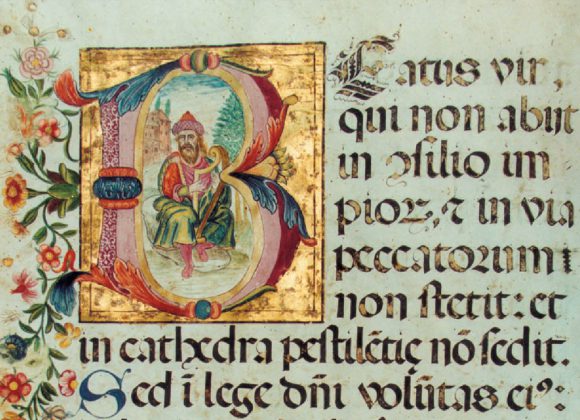 Beatus vir,
qui non abijt
in ꝯsilio im
pioꝝ, ⁊ in via
peccatorum
non stetit: et
in cathedra pestilẽtię nõ sedit.
Sed ĩ lege dñi volũtas eiꝰ: